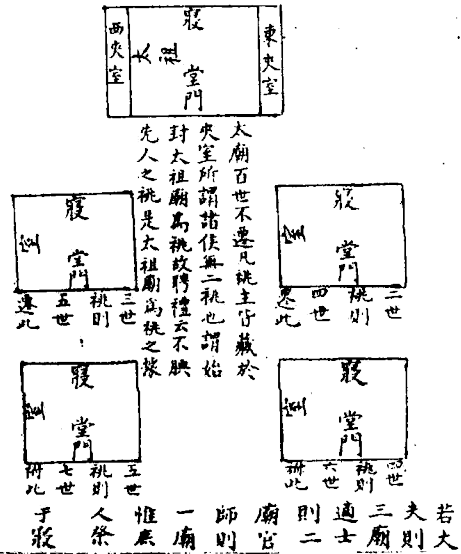 東夾室
寢
太祖
堂
門
西夾室
太廟百世不遷凡祧主皆藏於
夾室所謂諸侯無二祧也謂始
封太祖廟爲祧故聘禮云不腆
先人之祧是太祖廟爲祧之驗
寢
室
堂
門
二世
祧則
四世
遷此
寢
室
堂
門
三世
祧則
五世
遷此
寢
室
堂
門
四世
祧則
六世
祔此
寢
室
堂
門
五世
祧則
七世
祔此
若大
夫則
三廟
適士
則二
廟官
師則
一廟
惟庶
人祭
于寢